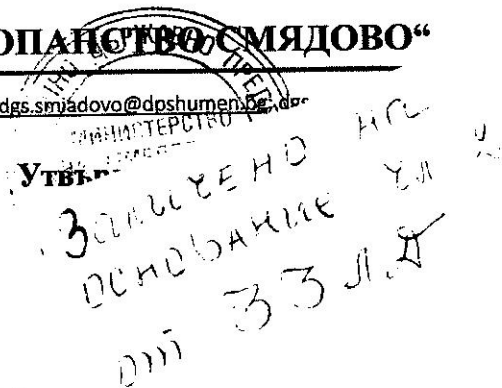 ОПАНСТВО СМЯДОВО“
dgs.smjadovo@dpshumen.bg; dgs
МИНИСТЕРСТВО
Утвъ
Заличено на
основание чл 2
от ЗЗЛД